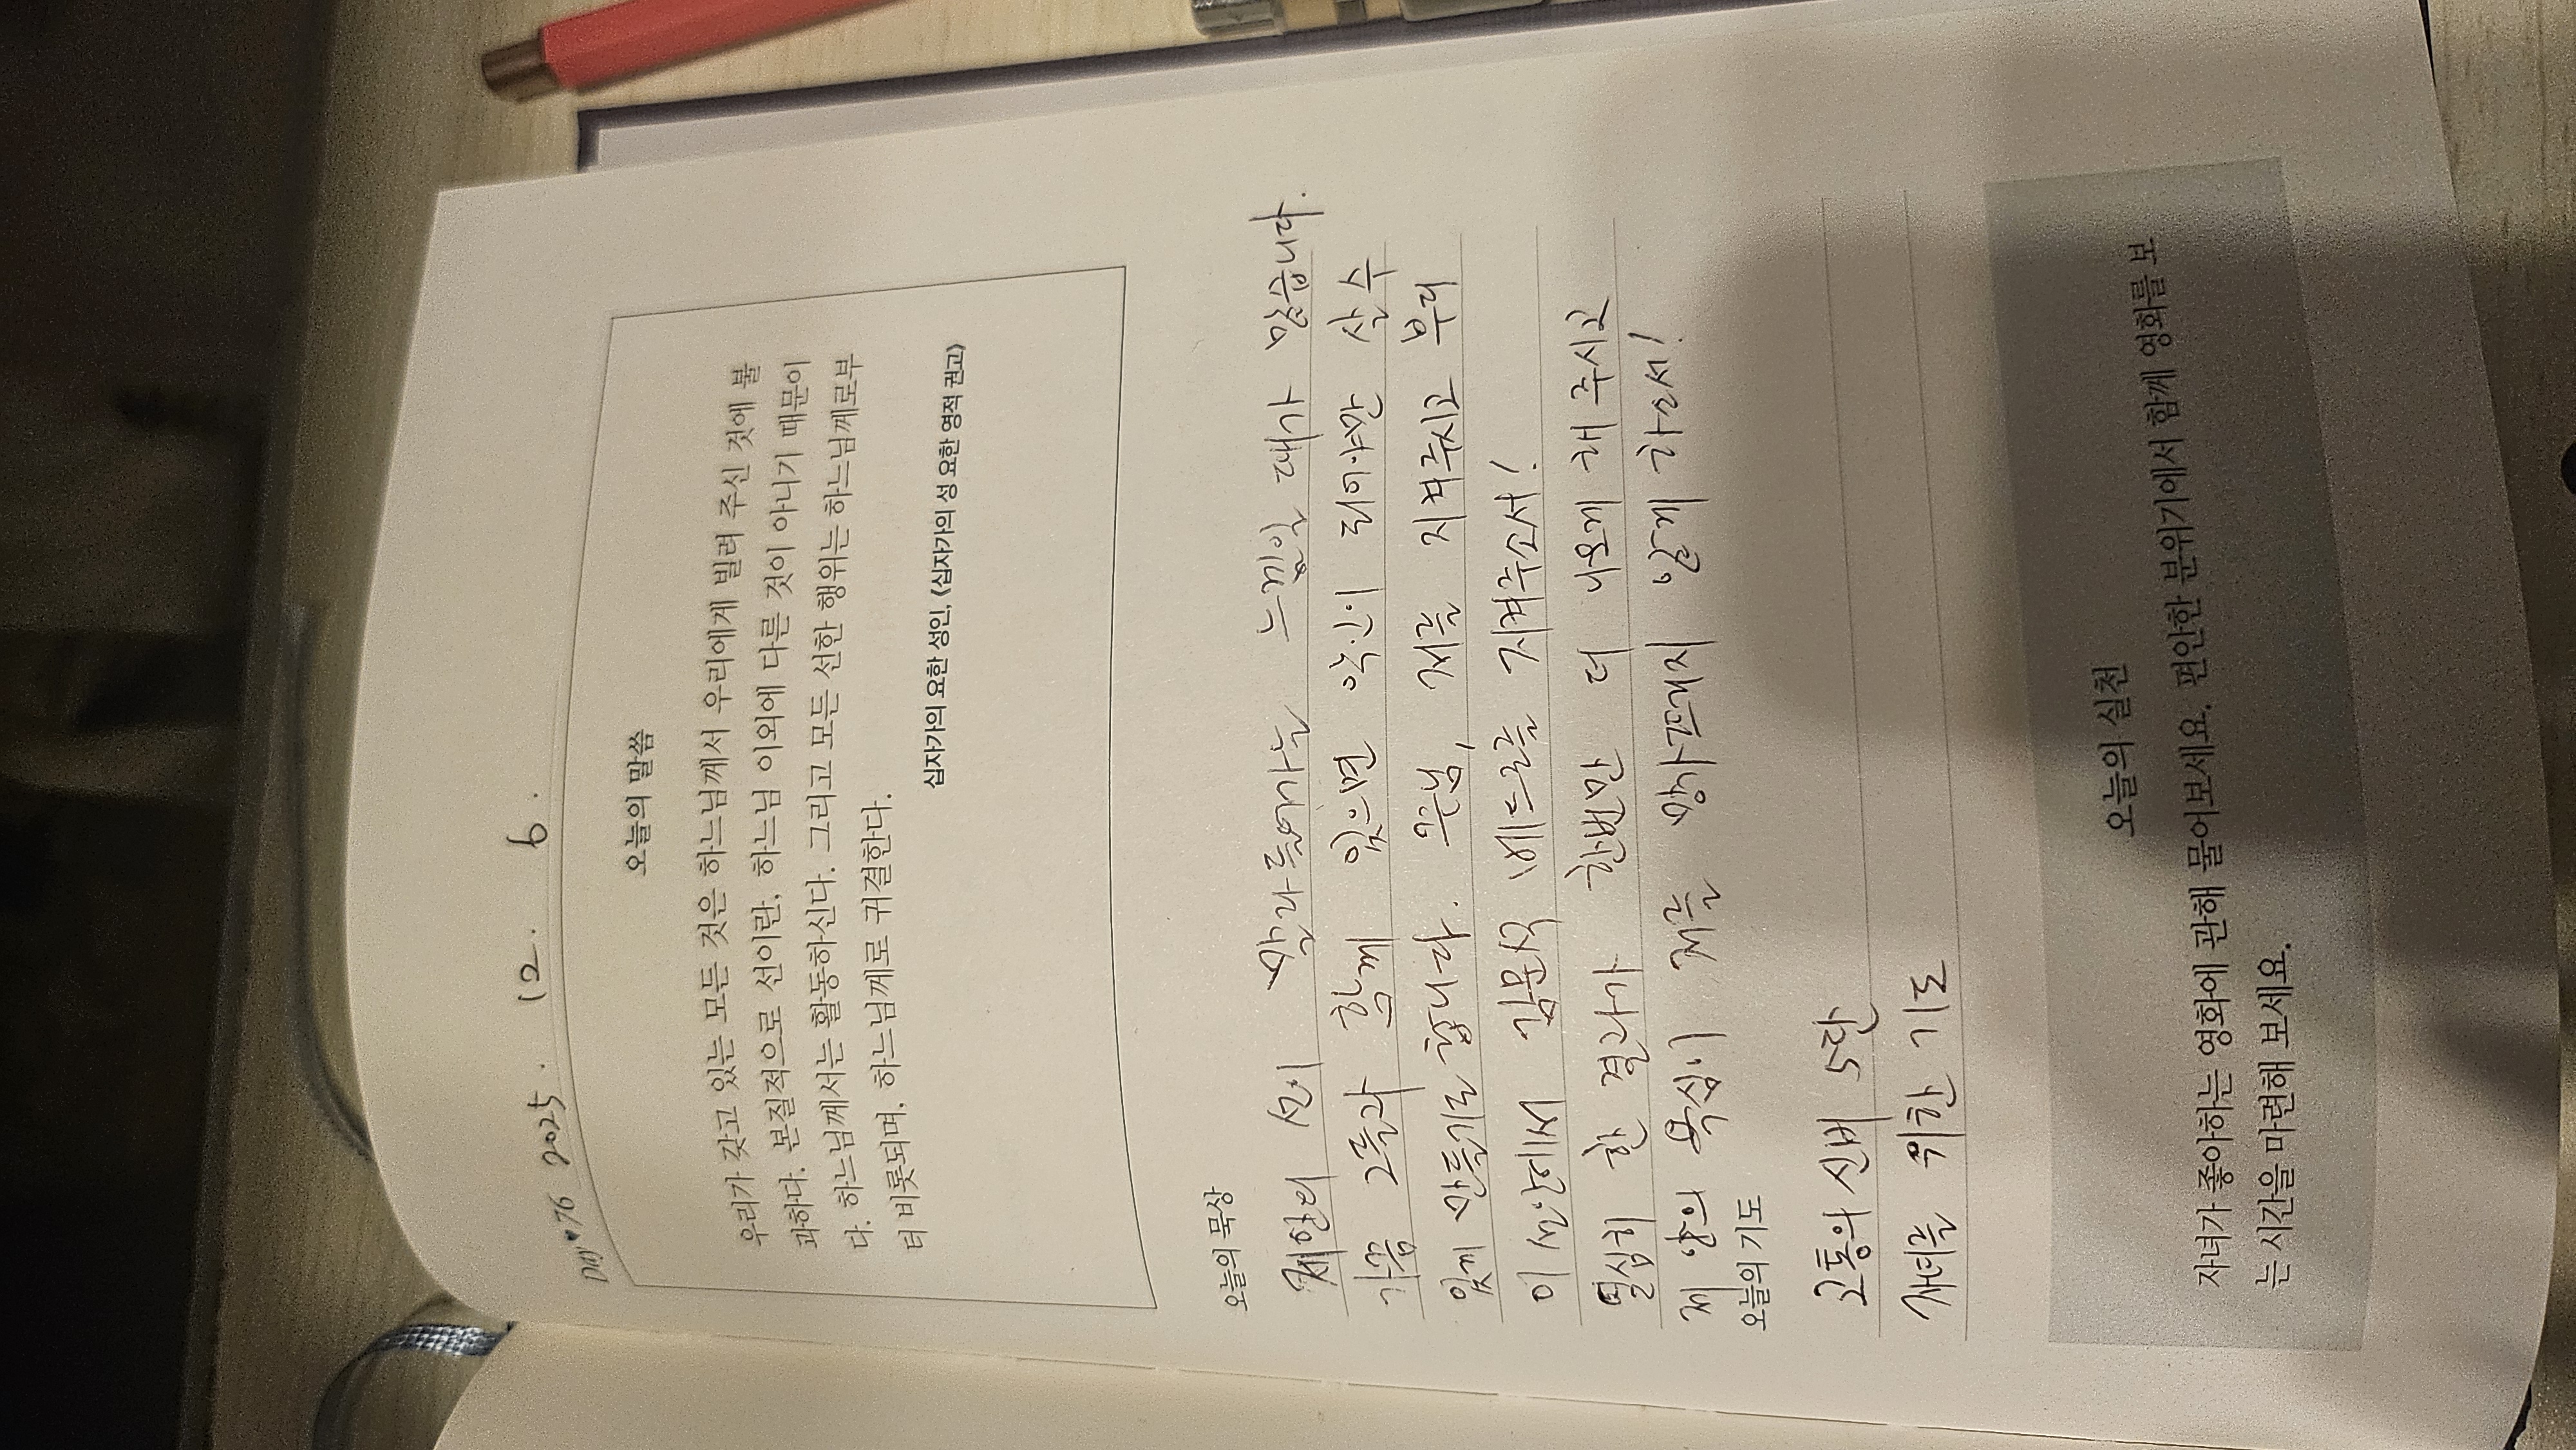 DAY•76 2025. 12. 6.
오늘의 말씀
우리가 갖고 있는 모든 것은 하느님께서 우리에게 빌려 주신 것에 불
과하다. 본질적으로 선이란, 하느님 이외에 다른 것이 아니기 때문이
다. 하느님께서는 활동하신다. 그리고 모든 선한 행위는 하느님께로부
터 비롯되며, 하느님께로 귀결한다.
십자가의 요한 성인, 《십자가의 성 요한 영적 권고》
오늘의 묵상
제한의 선이 말라들어가는 느낌일 때가 많습니다.
가끔 그들과 함께 있으면 악인이 되어야만 살 수
있게 만들기도 합니다. 주님, 저를 지켜주시고 우리
이 에서 김문석 베드로를 지켜주소서!
열심히 한 결과가 한번만 더 나오게 해 주시고
제 안의 욕심이 저를 망가뜨리지 않게 하소서!
오늘의 기도
고통의 신비 5단
자녀를 위한 기도
오늘의 실천
자녀가 좋아하는 영화에 관해 물어보세요. 편안한 분위기에서 함께 영화를 보
는 시간을 마련해 보세요.